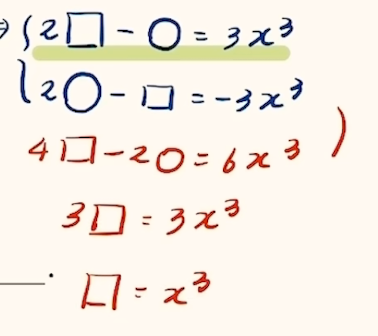 ⇒ { 2□ - ○ = 3x³
2○ - □ = -3x³
4□ - 2○ = 6x³ )
3□ = 3x³
□ = x³